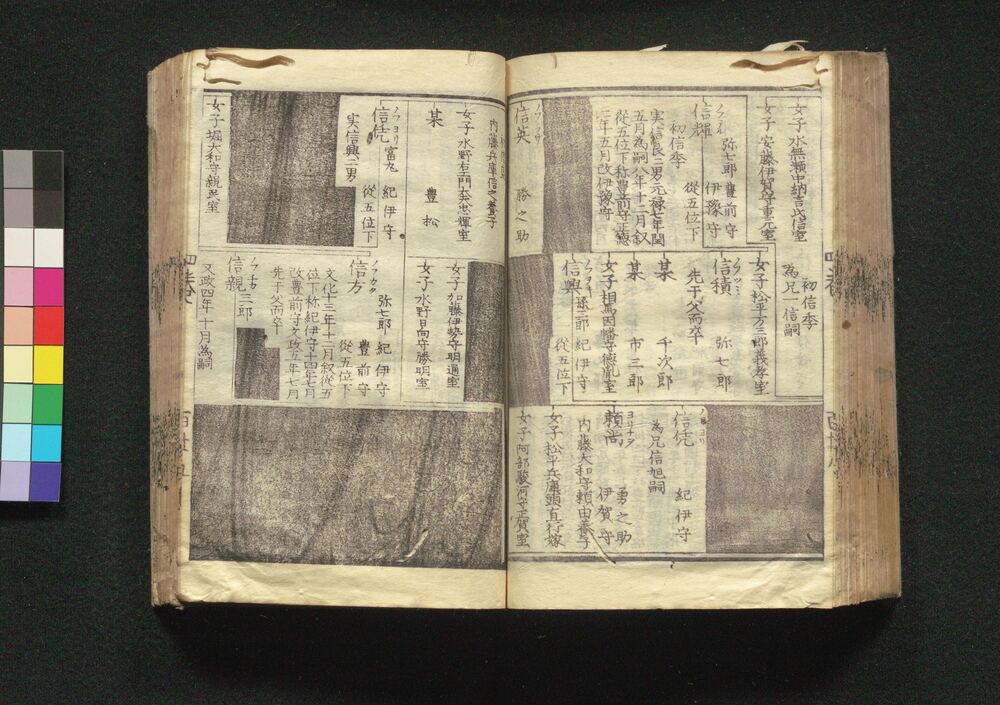 女子水無瀬中納言氏信室
女子安藤伊賀守重元室
信輝 弥七郎 豊前守
伊豫守
初信季 従五位下
実信良二男元禄七年閏
五月為嗣八年十二月叙
従五位下称豊前守正徳
三年五月改伊豫守
信英 勝之助
初信季
為兄一信嗣
女子松平万三郎義孝室
信積 弥七郎
先于父而卒
某 千次郎
某 市三郎
女子相馬因幡守徳胤室
信興 孫三郎 紀伊守
従五位下
信旭
信庸 紀伊守
為兄信旭嗣
頼尚 勇之助
伊賀守
内藤大和守頼由養子
女子松平兵庫頭直行嫁
女子阿部駿河守正賀室
内藤兵庫信之養子
女子水野右衛門大夫忠輝室
某 豊松
信凭 富丸 紀伊守
ノブヨリ
実信興三男 従五位下
女子堀大和守親民室
女子加藤伊勢守明通室
女子水野日向守勝明室
信方 弥七郎 紀伊守
ノブカタ
豊前守
従五位下
文化十三年十二月叙従五
位下称紀伊守十四年七月
改豊前守文政五年七月
先于父而卒
信親 三郎
ノブチカ
文政四年十月為嗣